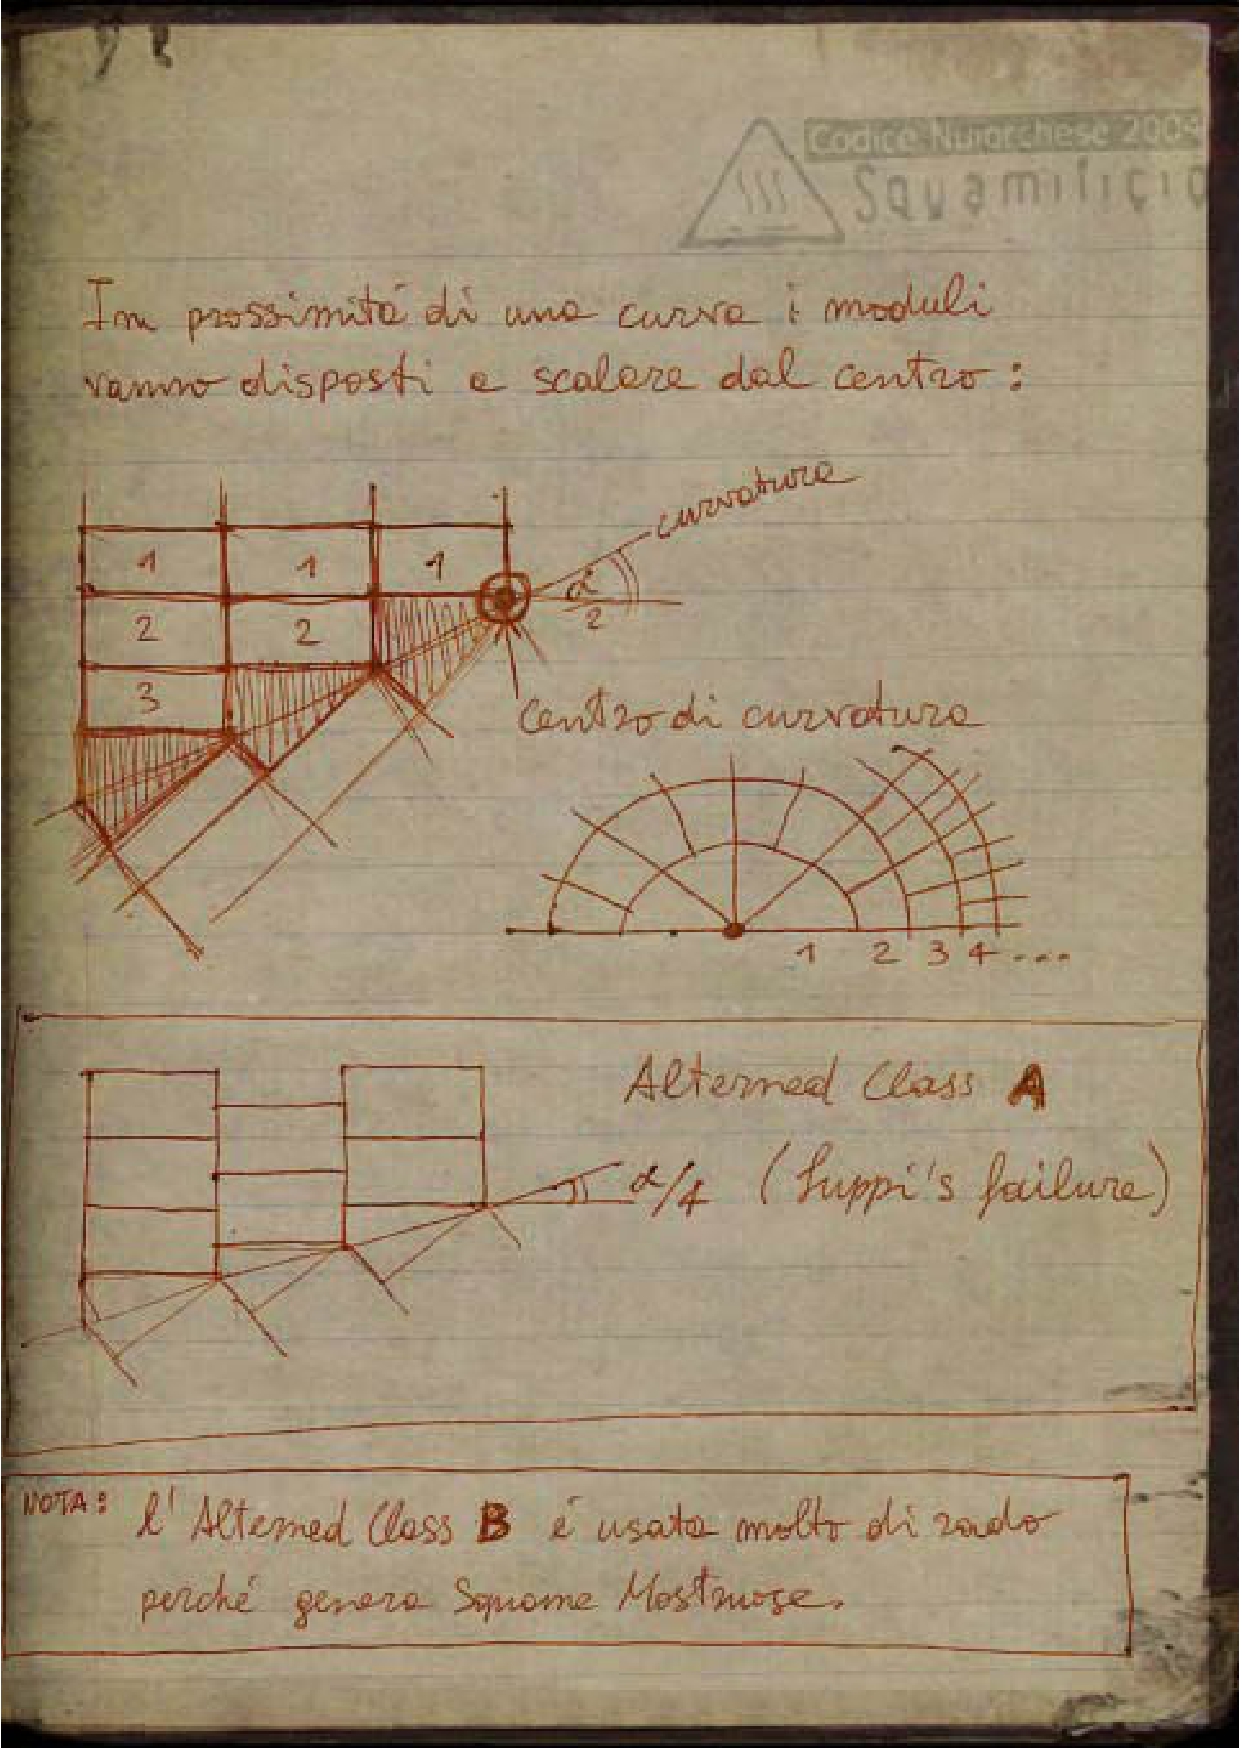 Codice Nuiorchese 2008
Squamificio
In prossimità di una curva i moduli
vanno disposti a scalare dal centro:
curvatura
1 1 1
α
2
2 2
3
Centro di curvatura
1 2 3 4 ....
Alterned Class A
α/4 (Suppi's failure)
NOTA: l'Alterned Class B é usata molto di rado
perché genera Squame Mostruose.